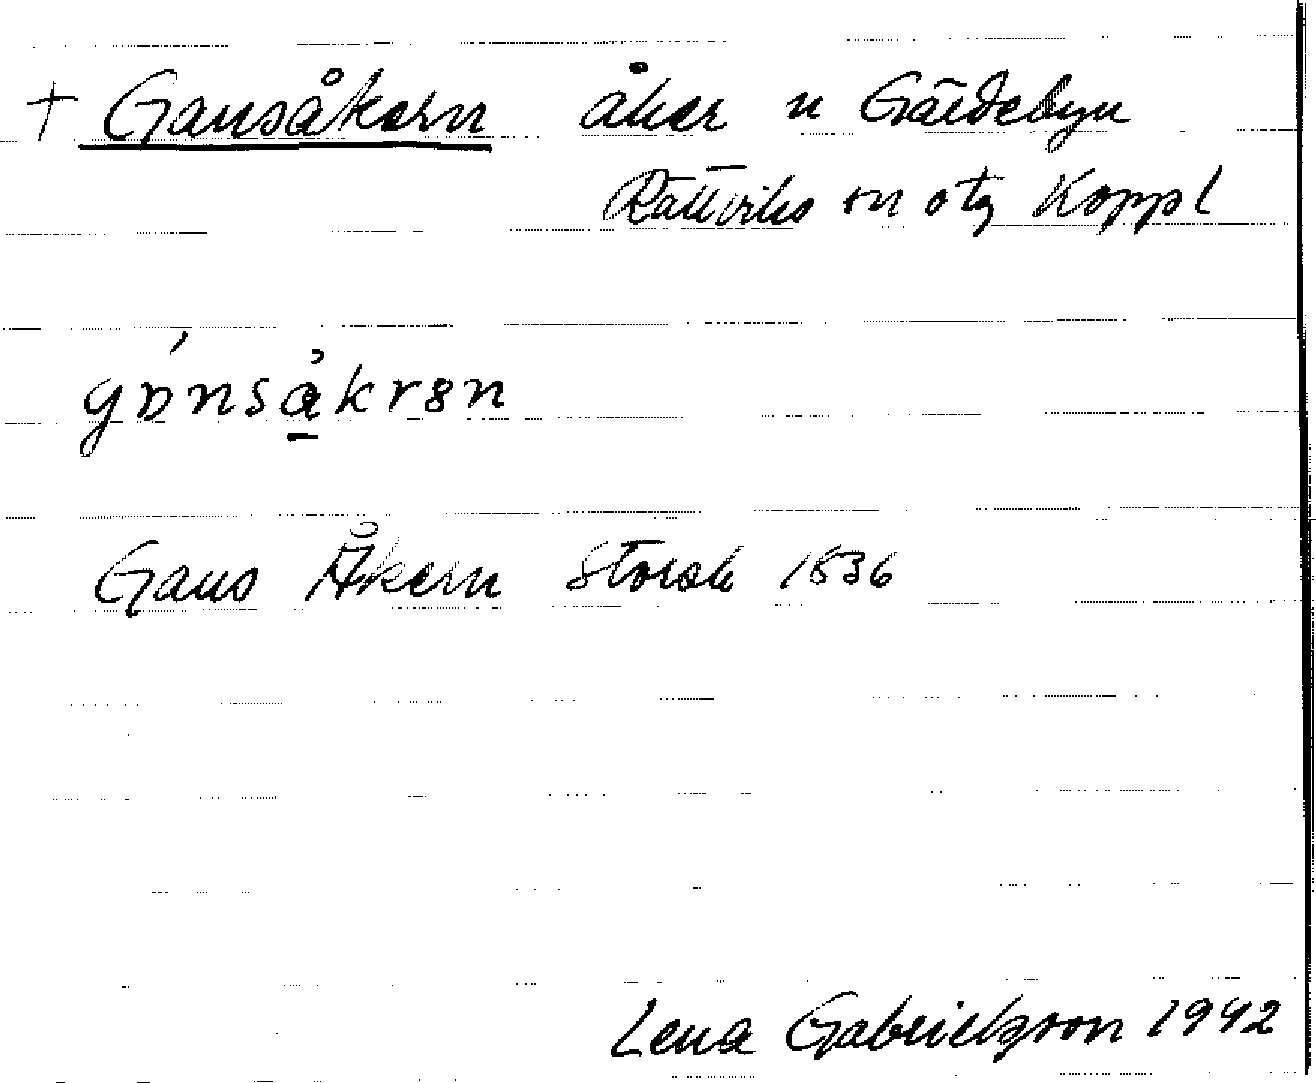 + Gansåkern åker n Gärdebyn
Rättviks sn otg Koppl
gɒ́nsåkrən
Gans Åkern Storsk 1836
Lena Gabrielsson 1942